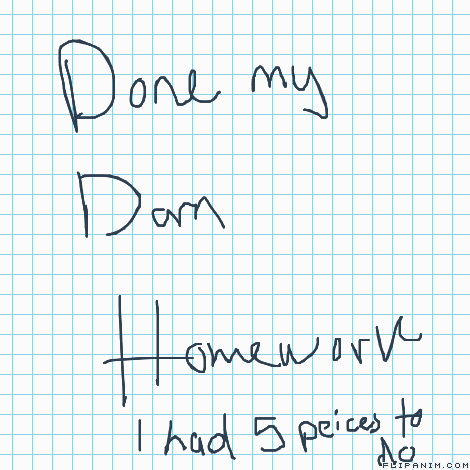 Done my
Darn
Homework
I had 5 peices to
do
FLIPANIM.COM